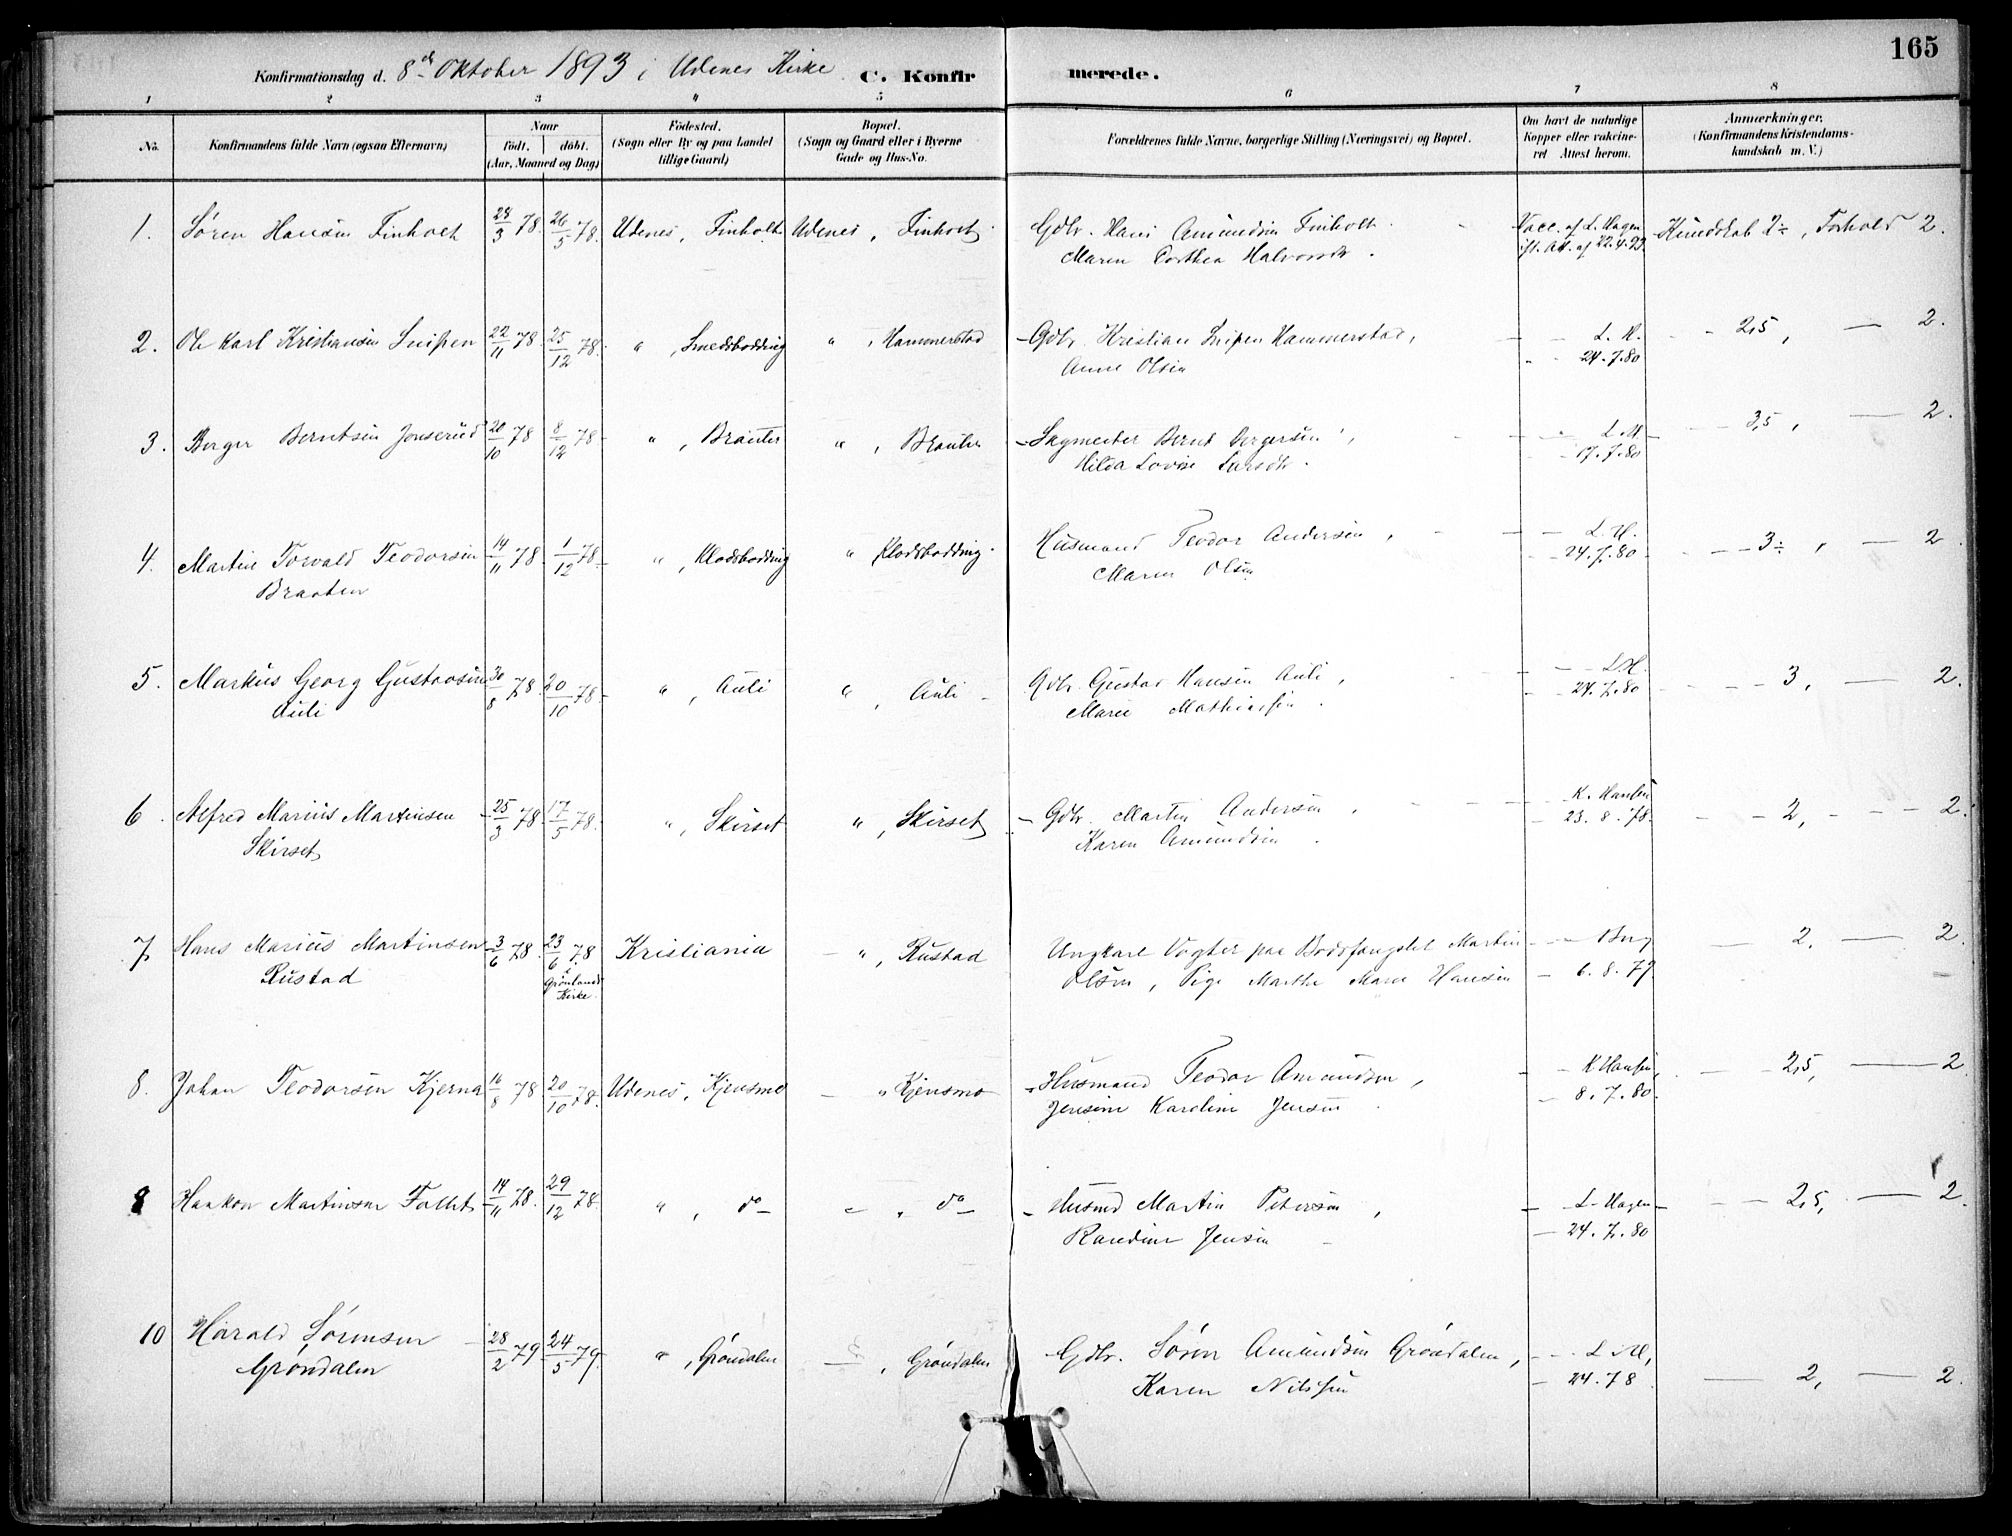 165
Konfirmationsdag d. 8de Oktober 1893 i Udenes Kirke. C. Konfirmerede.
1 2 3 4 5 6 7 8
No. Konfirmandens fulde Navn (ogsaa Efternavn) Naar födt. döbt. (Aar, Maaned og Dag) Födested. (Sogn eller By og paa Landet tillige Gaard) Bopæl. (Sogn og Gaard eller i Byerne Gade og Hus-No. Forældrenes fulde Navne, borgerlige Stilling (Næringsvei) og Bopæl. Om havt de naturlige Kopper eller vakcineret Attest herom. Anmærkninger. (Konfirmandens Kristendomskundskab m. V.)
1. Søren Hansen Finholt 28/3 78. 26/5 78. Udenes, Finholt Udenes, Finholt Gdbr. Hans Amundsen Finholt Vacc. af L. Hagen Kundskab 2÷, Forhold 2.
Maren Dorthea Halvorsdt. ifl. Att. af 22.4.93
2. Ole Karl Kristiansen Snipen 22/11 78. 25/12 78. " , Smedsbødding " , Hammerstad Gdbr. Kristian Snipen Hammerstad, L. H. 2,5, — 2.
Anne Olsen 24.7.80
3. Berger Berntsen Jonserud 20/10 78 8/12 78 " , Braaten " , Braaten Sagmester Bernt Bergersen, L H 3,5, — 2.
Hilda Lovise Larsdt. 17.7.80
4. Martin Torvald Teodorsen 14/11 78 1/12 78. " , Klodsbødding " Klodsbødding. Husmand Teodor Andersen, L. H. 3÷, — 2
Braaten Maren Olsen 24.7.80
5. Markus Georg Gustavsen 30/8 78 20/10 78 " , Auli " , Auli Gdbr. Gustav Hansen Auli, L H. 3, — 2.
Auli Maren Mathiassen. 24.7.80
6. Alfred Marius Martinsen 25/3 78. 17/5 78. " , Skirset " , Skirset Gdbr. Martin Andersen, K. Hansen 2, — 2.
Skirset Karen Amundsen. 23.8.78.
7. Hans Marius Martinsen 3/6 78. 23/6 78 Kristiania " , Rustad Ungkarl Vogter paa Bodsfængslet Martin Berg 2, — 2.
Rustad i Grønlands Kirke Olsen, Pige Marthe Marie Hansen 6.8.79
8. Johan Teodorsen Kjerna 16/8 78. 20/10 78. Udenes, Kjensmo " Kjensmo Husmand Teodor Amundsen, K Hansen, 2,5, — 2
Jensine Karoline Jensen. 8.7.80.
8 Haakon Martinsen Follet 14/11 78. 29/12 78 " , do — " , do — Husmd Martin Petersen, L. Hagen 2,5, — 2.
Randine Jensen 24.7.80
10 Harald Sørensen 28/2 79 24/5 79. " , Grøndalen — " , Grøndalen Gdbr. Søren Amundsen Grøndalen, L H,
Grøndalen Karen Nilssen 24.78 — 2, — 2.